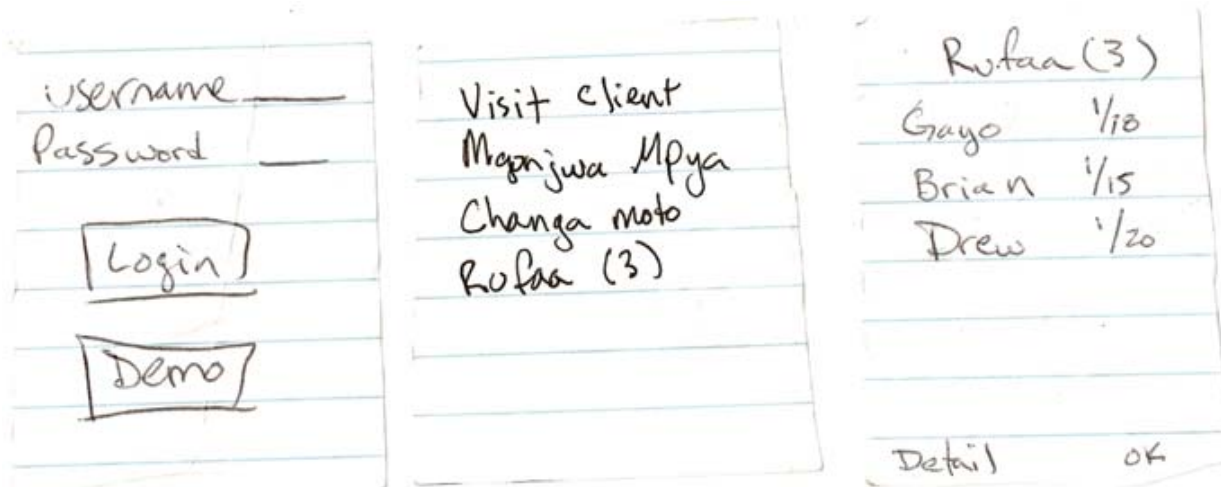 username
Password
Login
Demo
Visit client
Mgonjwa Mpya
Changa moto
Rufaa (3)
Rufaa (3)
Gayo 1/18
Brian 1/15
Drew 1/20
Detail OK